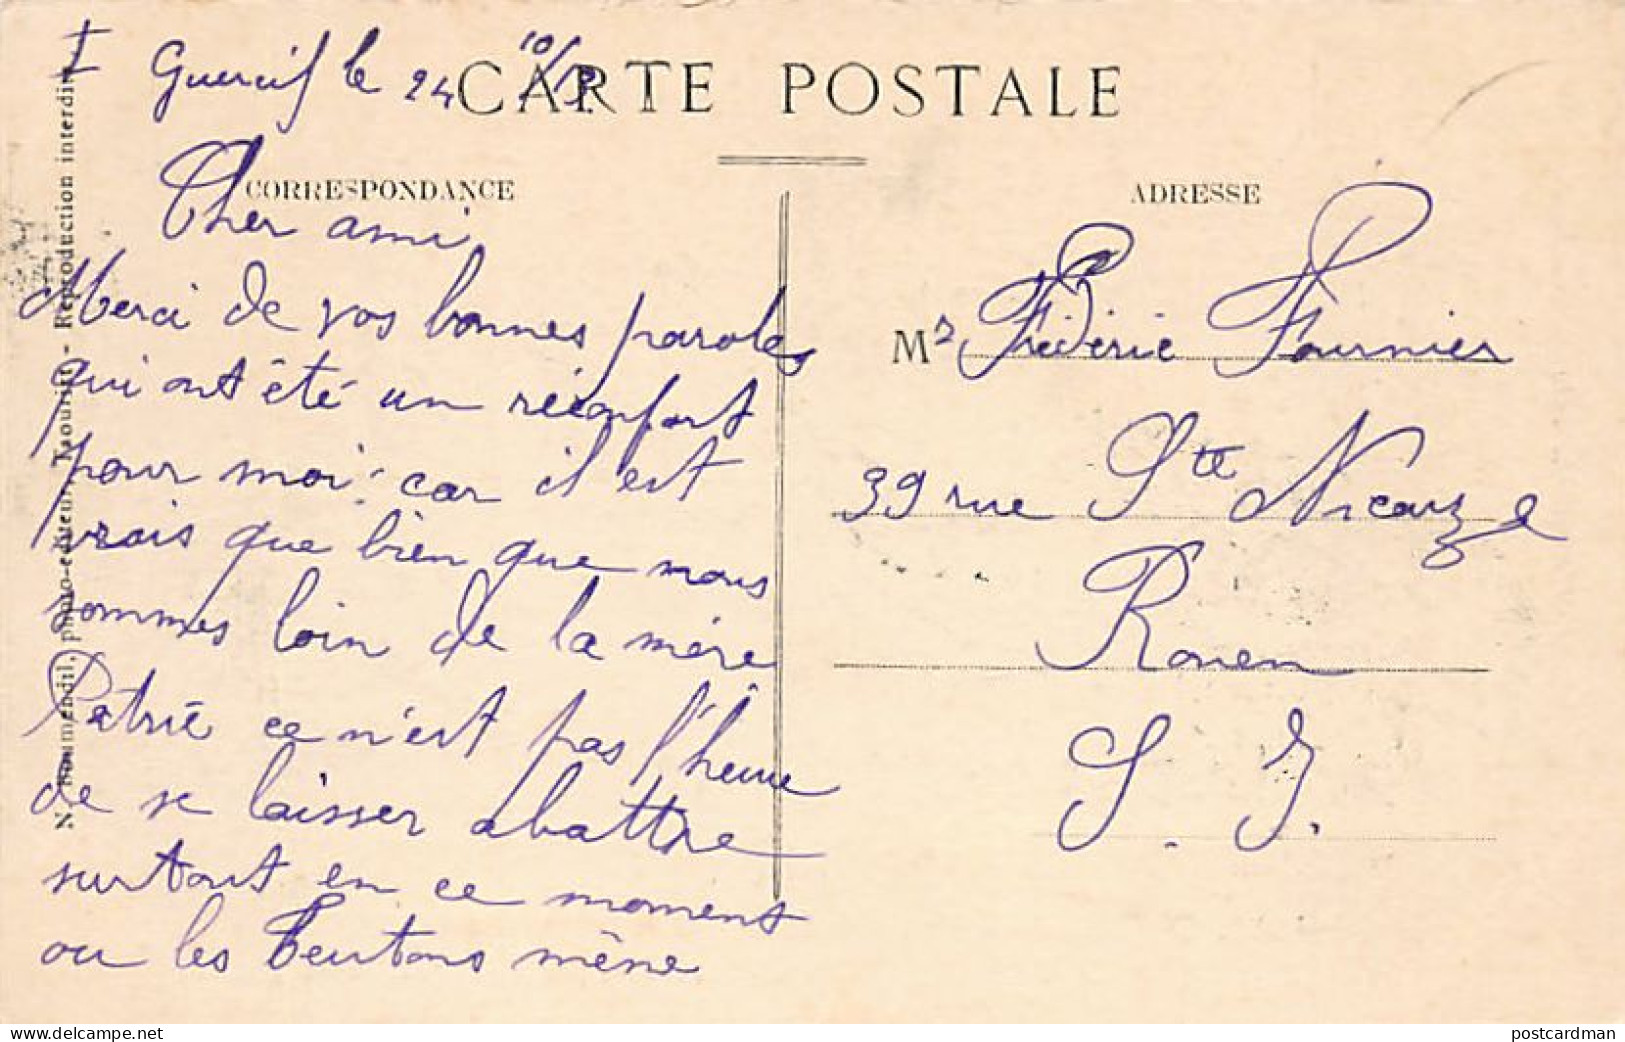 I
Guercif le 24 10/15
CARTE POSTALE
CORRESPONDANCE
Cher ami
Merci de vos bonnes paroles
qui ont été un réconfort
pour moi car il est
vrais que bien que nous
sommes loin de la mére
Patrie ce n'est pas l'heure
de se laisser abattre
surtout en ce moment
ou les Teutons mène
ADRESSE
Mr Fréderic Fournier
39 rue Ste Nicaize
Rouen
S. I.
N. Boumendil, photo-éditeur, Taourirt - Reproduction interdite
www.delcampe.net
postcardman